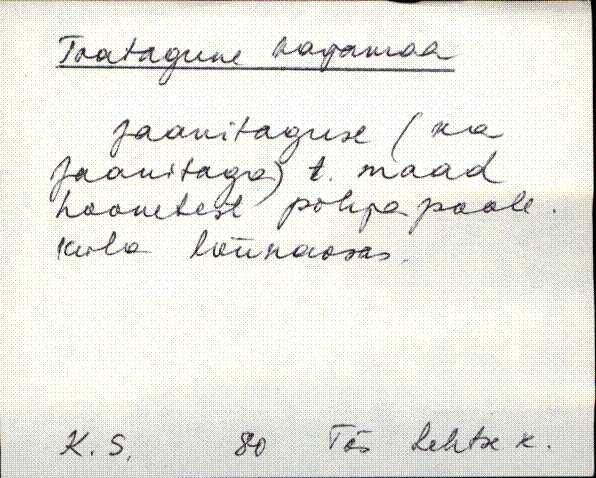 Toatagune kagamaa
Jaanitaguse (ka
Jaanitaga) t. maad
hoonetest põhja poole.
küla lõunaosas.
K. S. 80 Tõs Lehtse k.